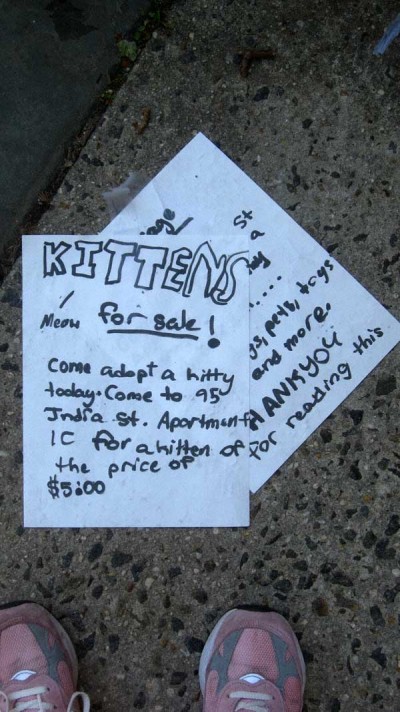 KITTENS
Meow for sale!
Come adopt a kitty
today. Come to 95
India St. Apartment
1C for a kitten of
the price of
$5.00
St
a
and more.
THANK YOU
For reading this